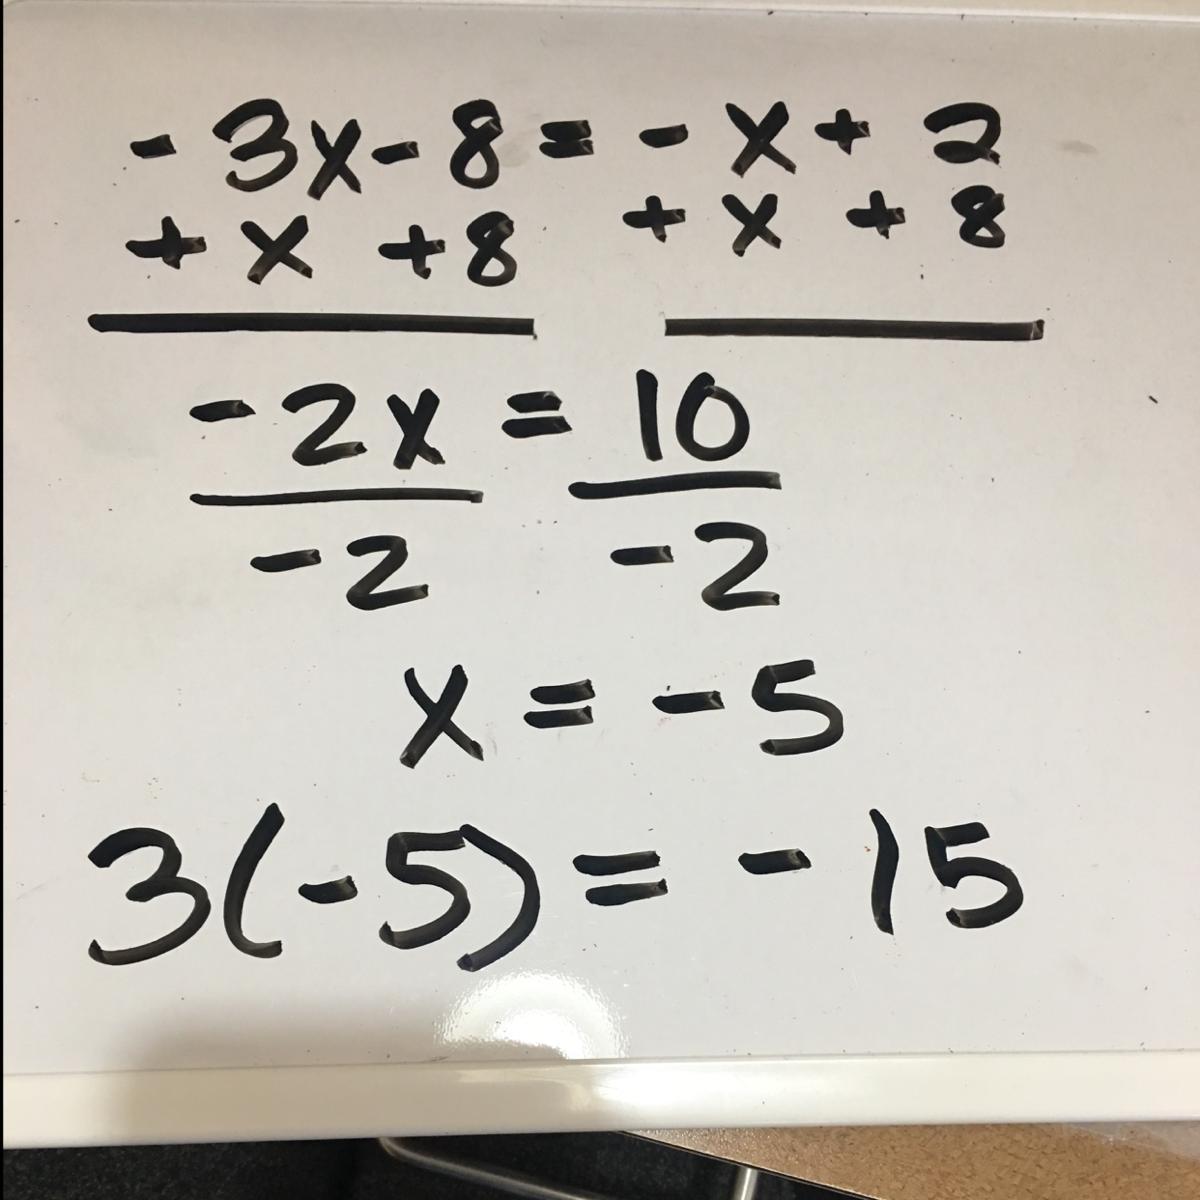 - 3x - 8 = - x + 2
+ x + 8 + x + 8
- 2x = 10
- 2 - 2
x = - 5
3(-5) = - 15